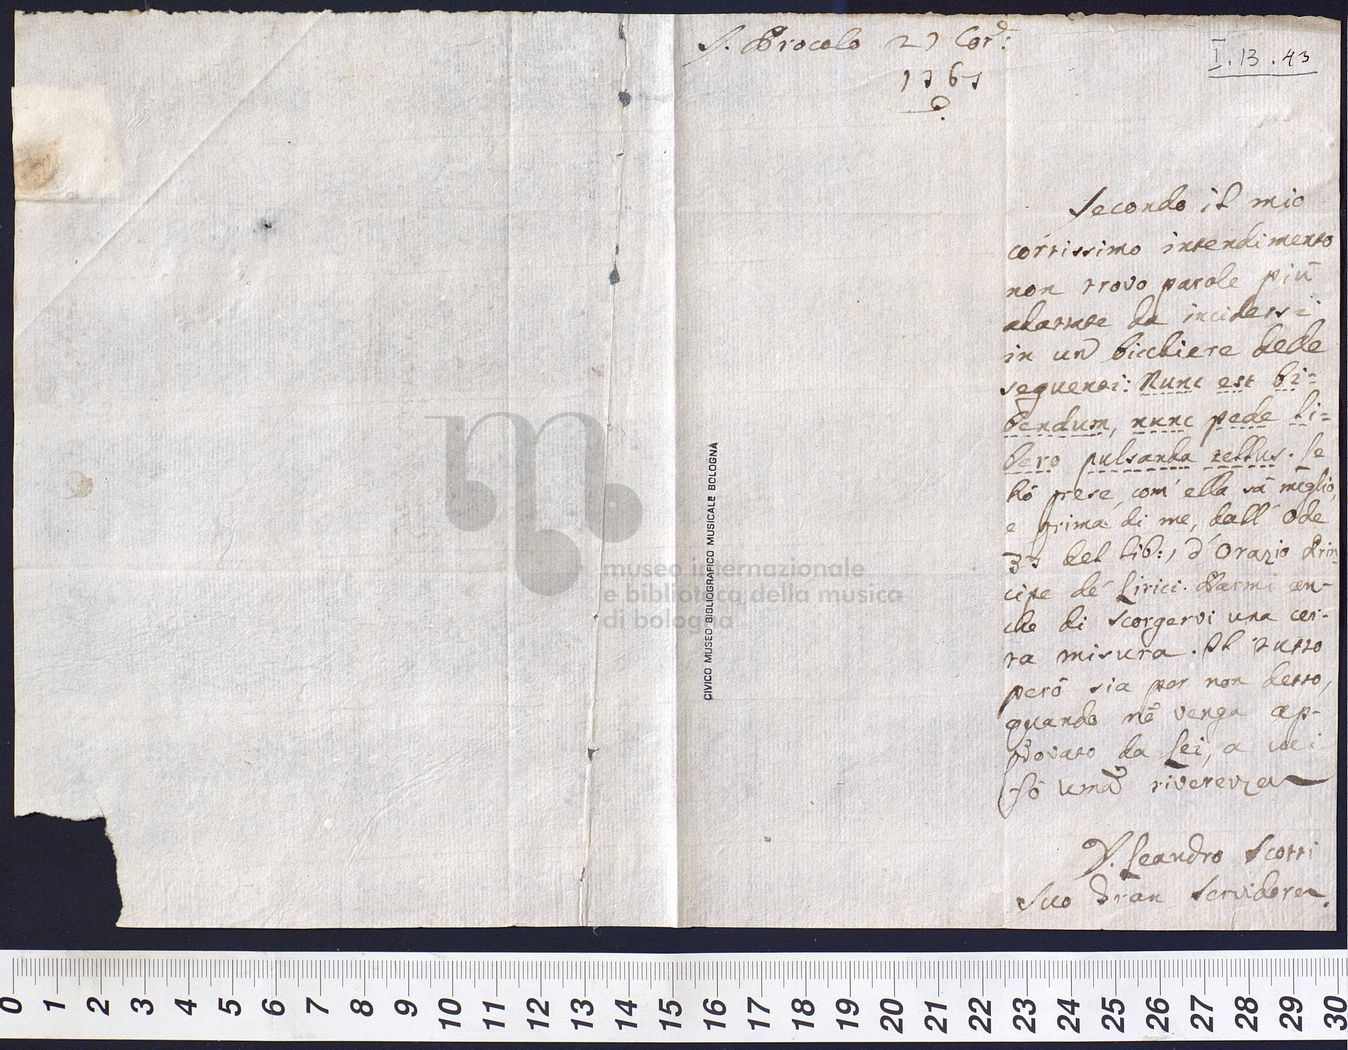 S. Procolo 27 Cor.e:
1767
I. 13. 43
Secondo il mio
cortissimo intendimento
non trovo parole più
adattate da incidersi
in un bicchiere delle
seguenti: Nunc est bi=
bendum, nunc pede li=
bero pulsanda tellus. Le
hò prese, com' ella sà meglio,
e prima di me, dall' Ode
37 del lib:, d' Orazio Prin
cipe de' Lirici. Parmi an-
che di scorgervi una cer-
ta misura. Il tutto
però sia per non detto,
quando nõ venga ap-
provato da Lei, a cui
fò umã riverenza
D. Leandro Scotti
Suo Gran Servidore.
CIVICO MUSEO BIBLIOGRAFICO MUSICALE BOLOGNA
museo internazionale
e biblioteca della musica
di bologna
0 1 2 3 4 5 6 7 8 9 10 11 12 13 14 15 16 17 18 19 20 21 22 23 24 25 26 27 28 29 30